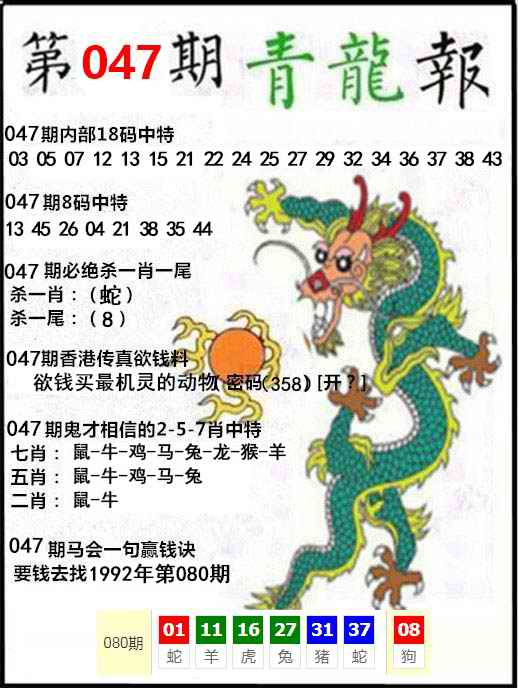 第047期青龍報
047期内部18码中特
03 05 07 12 13 15 21 22 24 25 27 29 32 34 36 37 38 43
047期8码中特
13 45 26 04 21 38 35 44
047 期必绝杀一肖一尾
杀一肖：（蛇）
杀一尾：（8）
047期香港传真欲钱料
欲钱买最机灵的动物( 密码(358) [开？]
047期鬼才相信的2-5-7肖中特
七肖： 鼠-牛-鸡-马-兔-龙-猴-羊
五肖： 鼠-牛-鸡-马-兔
二肖： 鼠-牛
047期马会一句赢钱诀
要钱去找1992年第080期
080期 01 11 16 27 31 37 08
蛇 羊 虎 兔 猪 蛇 狗